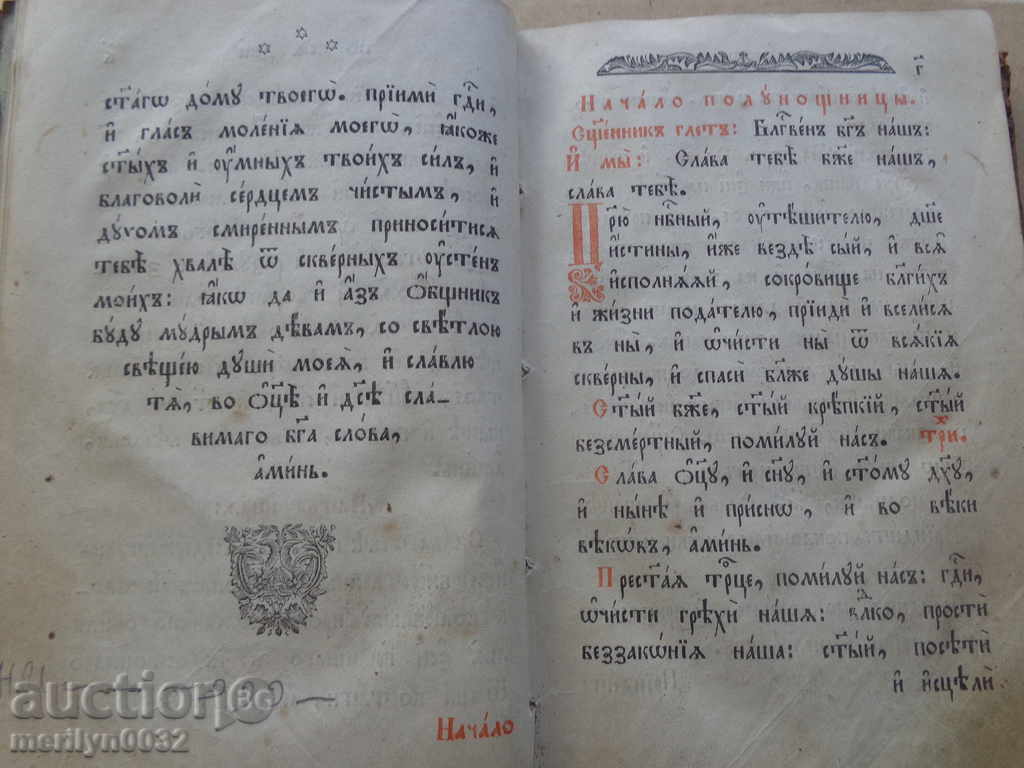 ст҃агѡ дому твоегѡ. прїими гд҇и,
и гласъ моленїя моегѡ, ꙗкоже
ст҃ыхъ и оумныхъ твоихъ силъ, и
благоволи сердцемъ чистымъ, и
духомъ смиреннымъ приноситися
тебѣ хвалѣ ѿ скверныхъ оустенъ
моихъ: ꙗкѡ да и азъ общникъ
буду мудрымъ дѣвамъ, со свѣтлою
свѣщею души моеѧ, и славлю
тѧ, во оц҃ѣ и дс҃ѣ сла-
вимаго бг҃а слова,
аминь.
Начало
г҃
Начало полунощницы.
Сщ҃енникъ гл҃етъ: Блг҇венъ бг҃ъ нашъ:
И мы: Слава тебѣ бж҃е нашъ,
слава тебѣ.
Цр҃ю нб҇ный, оутѣшителю, дш҃е
истины, иже вездѣ сый, и всѧ
исполнѧѧй, сокровище бл҃гихъ
и жизни подателю, прїиди и вселисѧ
въ ны, и ѡчисти ны ѿ всѧкїѧ
скверны, и спаси бл҃же душы нашѧ.
Ст҃ый бж҃е, ст҃ый крѣпкїй, ст҃ый
безсмертный, помилуй насъ. трищ.
Слава оц҃у, и сн҃у, и ст҃ому дх҃у,
и нынѣ и приснѡ, и во вѣки
вѣкѡвъ, аминь.
Прест҃аѧ трⷪ҇це, помилуй насъ: гд҇и,
ѡчисти грѣхи нашѧ: влⷣко, прости
беззакѡнїѧ наша: ст҃ый, посѣти
и исцѣли
auction.bg
merilyn0032